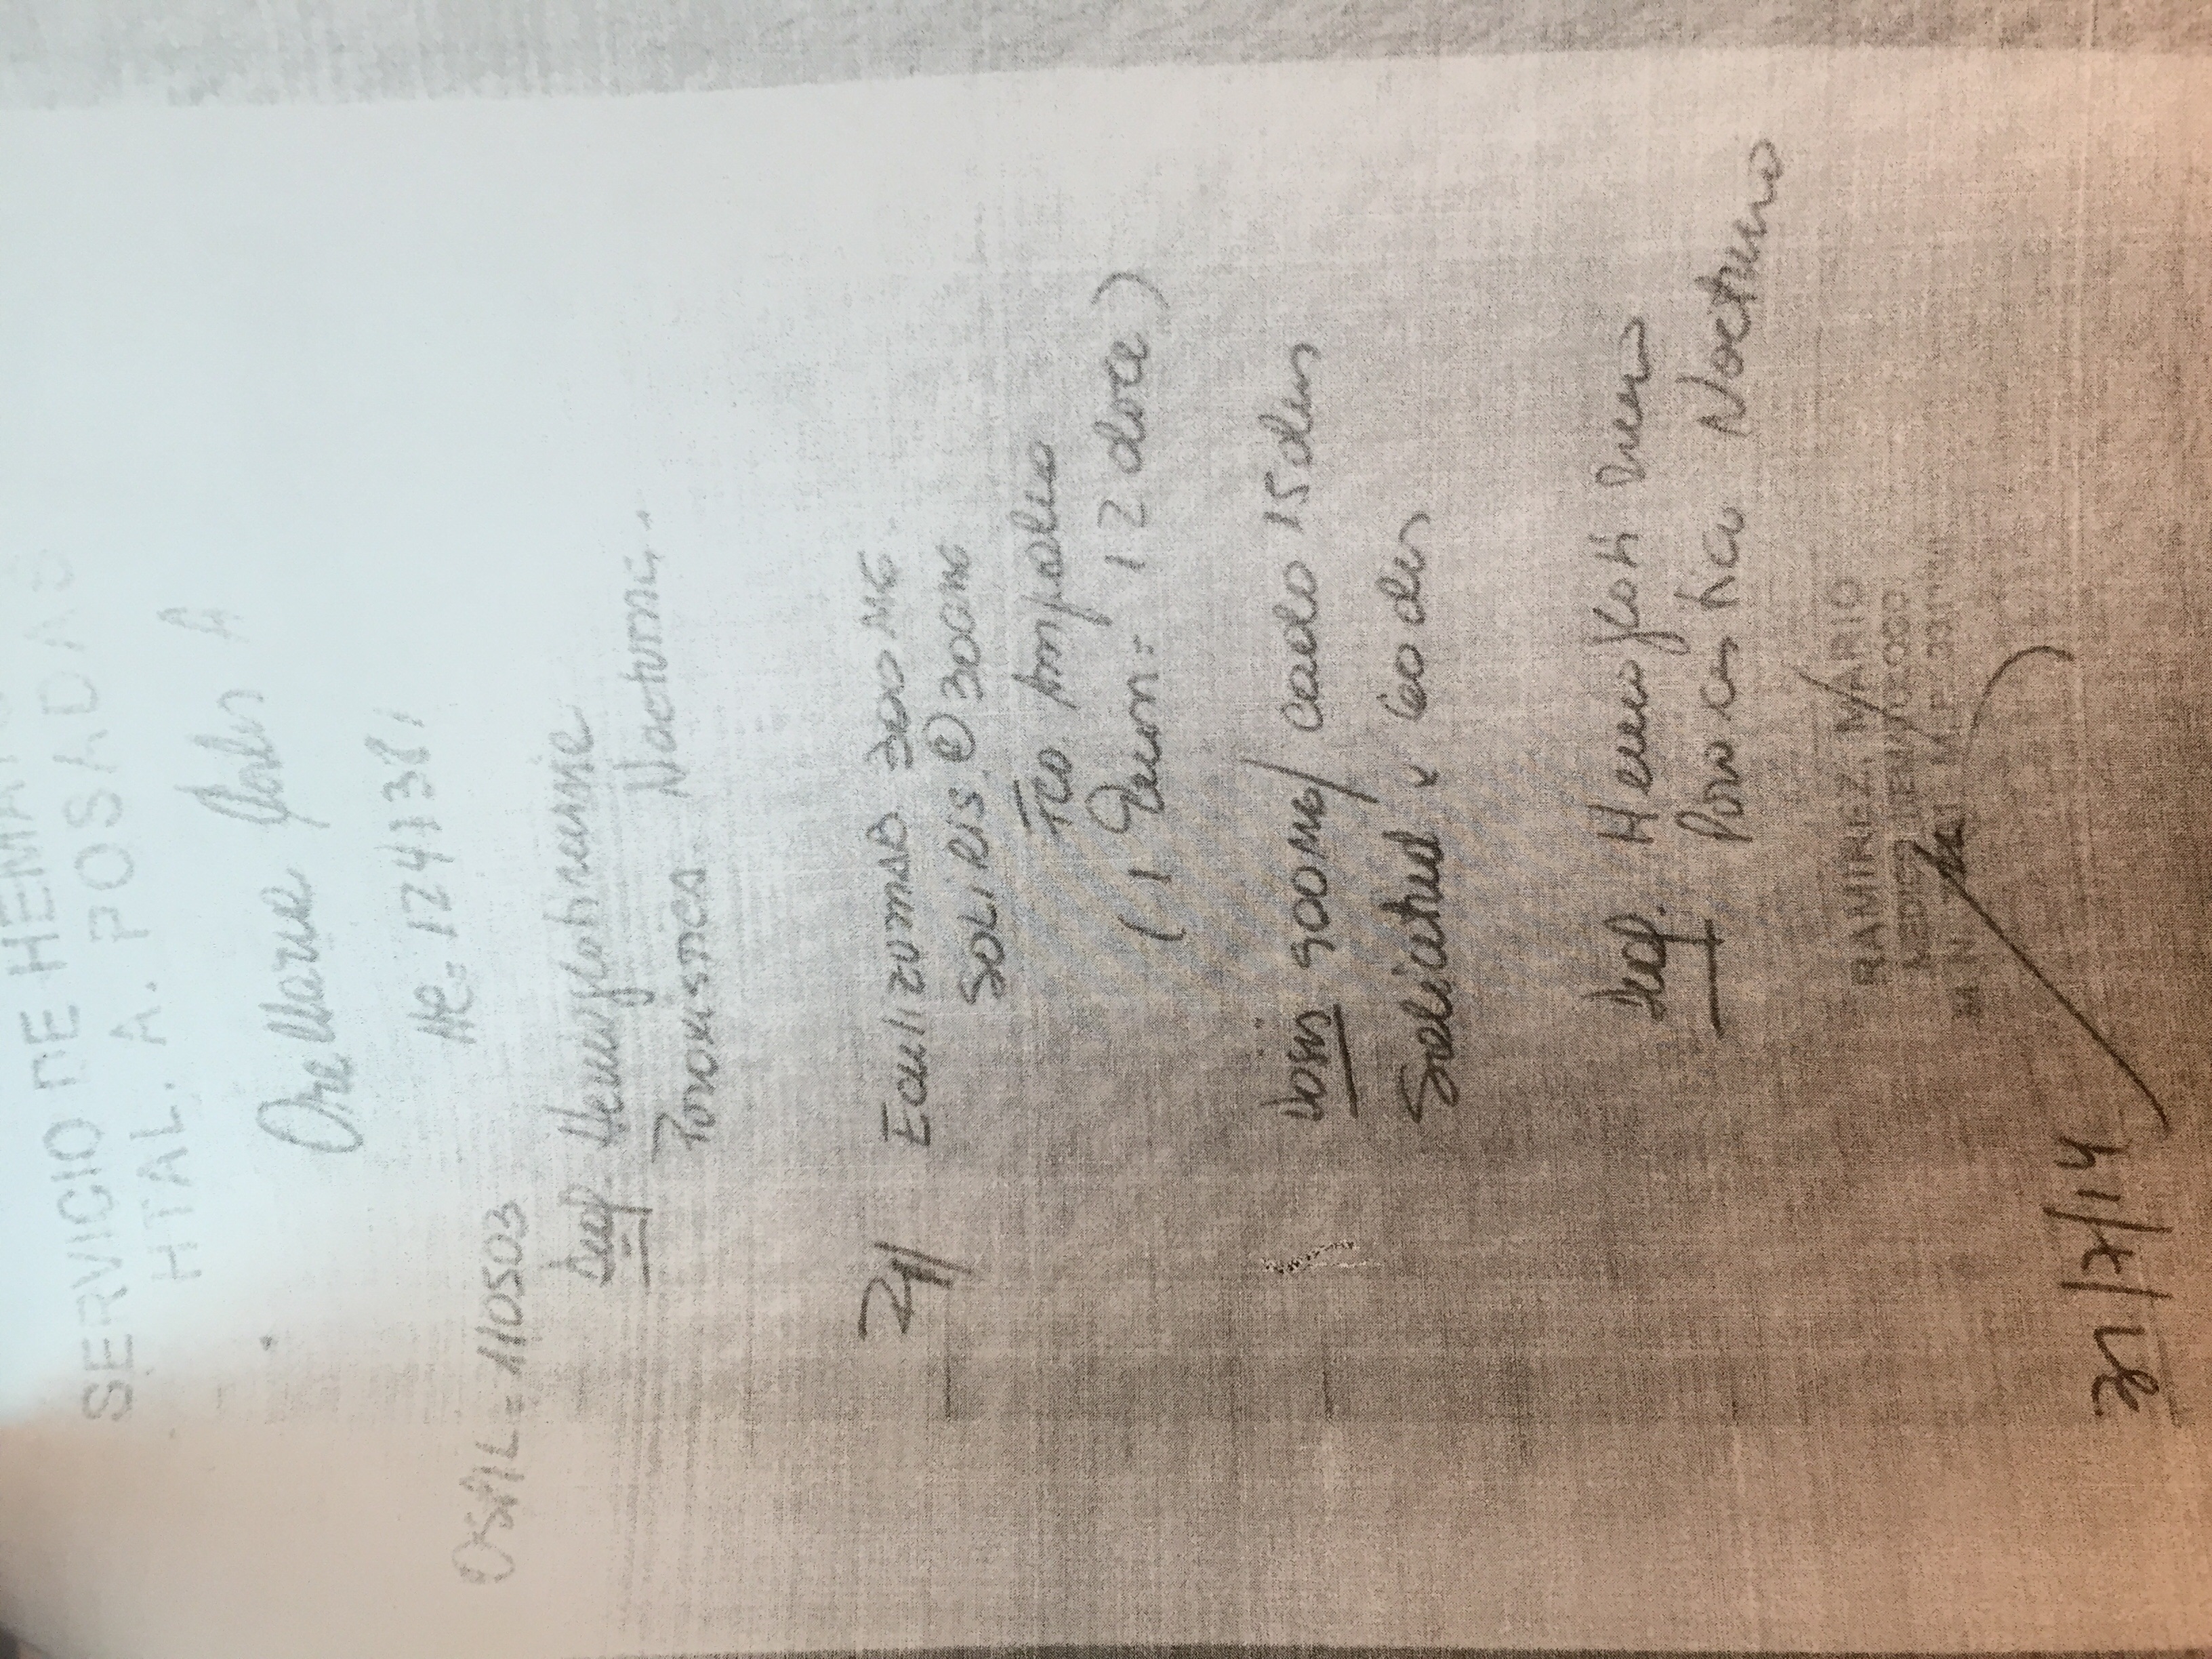 SERVICIO DE HEMATO
HTAL. A. POSADAS
Orellana Carlos A
HC = 1247381
OSPIL = 110503
Diag. Hemoglobinuria
Paroxistica Nocturna.
Rp/ Eculizumab 300 MG.
SOLIRIS ® 300MG
Fco Ampolla
(1 = 12 doce)
Dosis 900MG/ cada 15 dias
Solicitud x 60 dias
Diag. Hemoglobinuria
Paroxistica Nocturna
RAMIREZ, MARIO
MEDICO HEMATOLOGO
M.N. M.P.
31/7/14